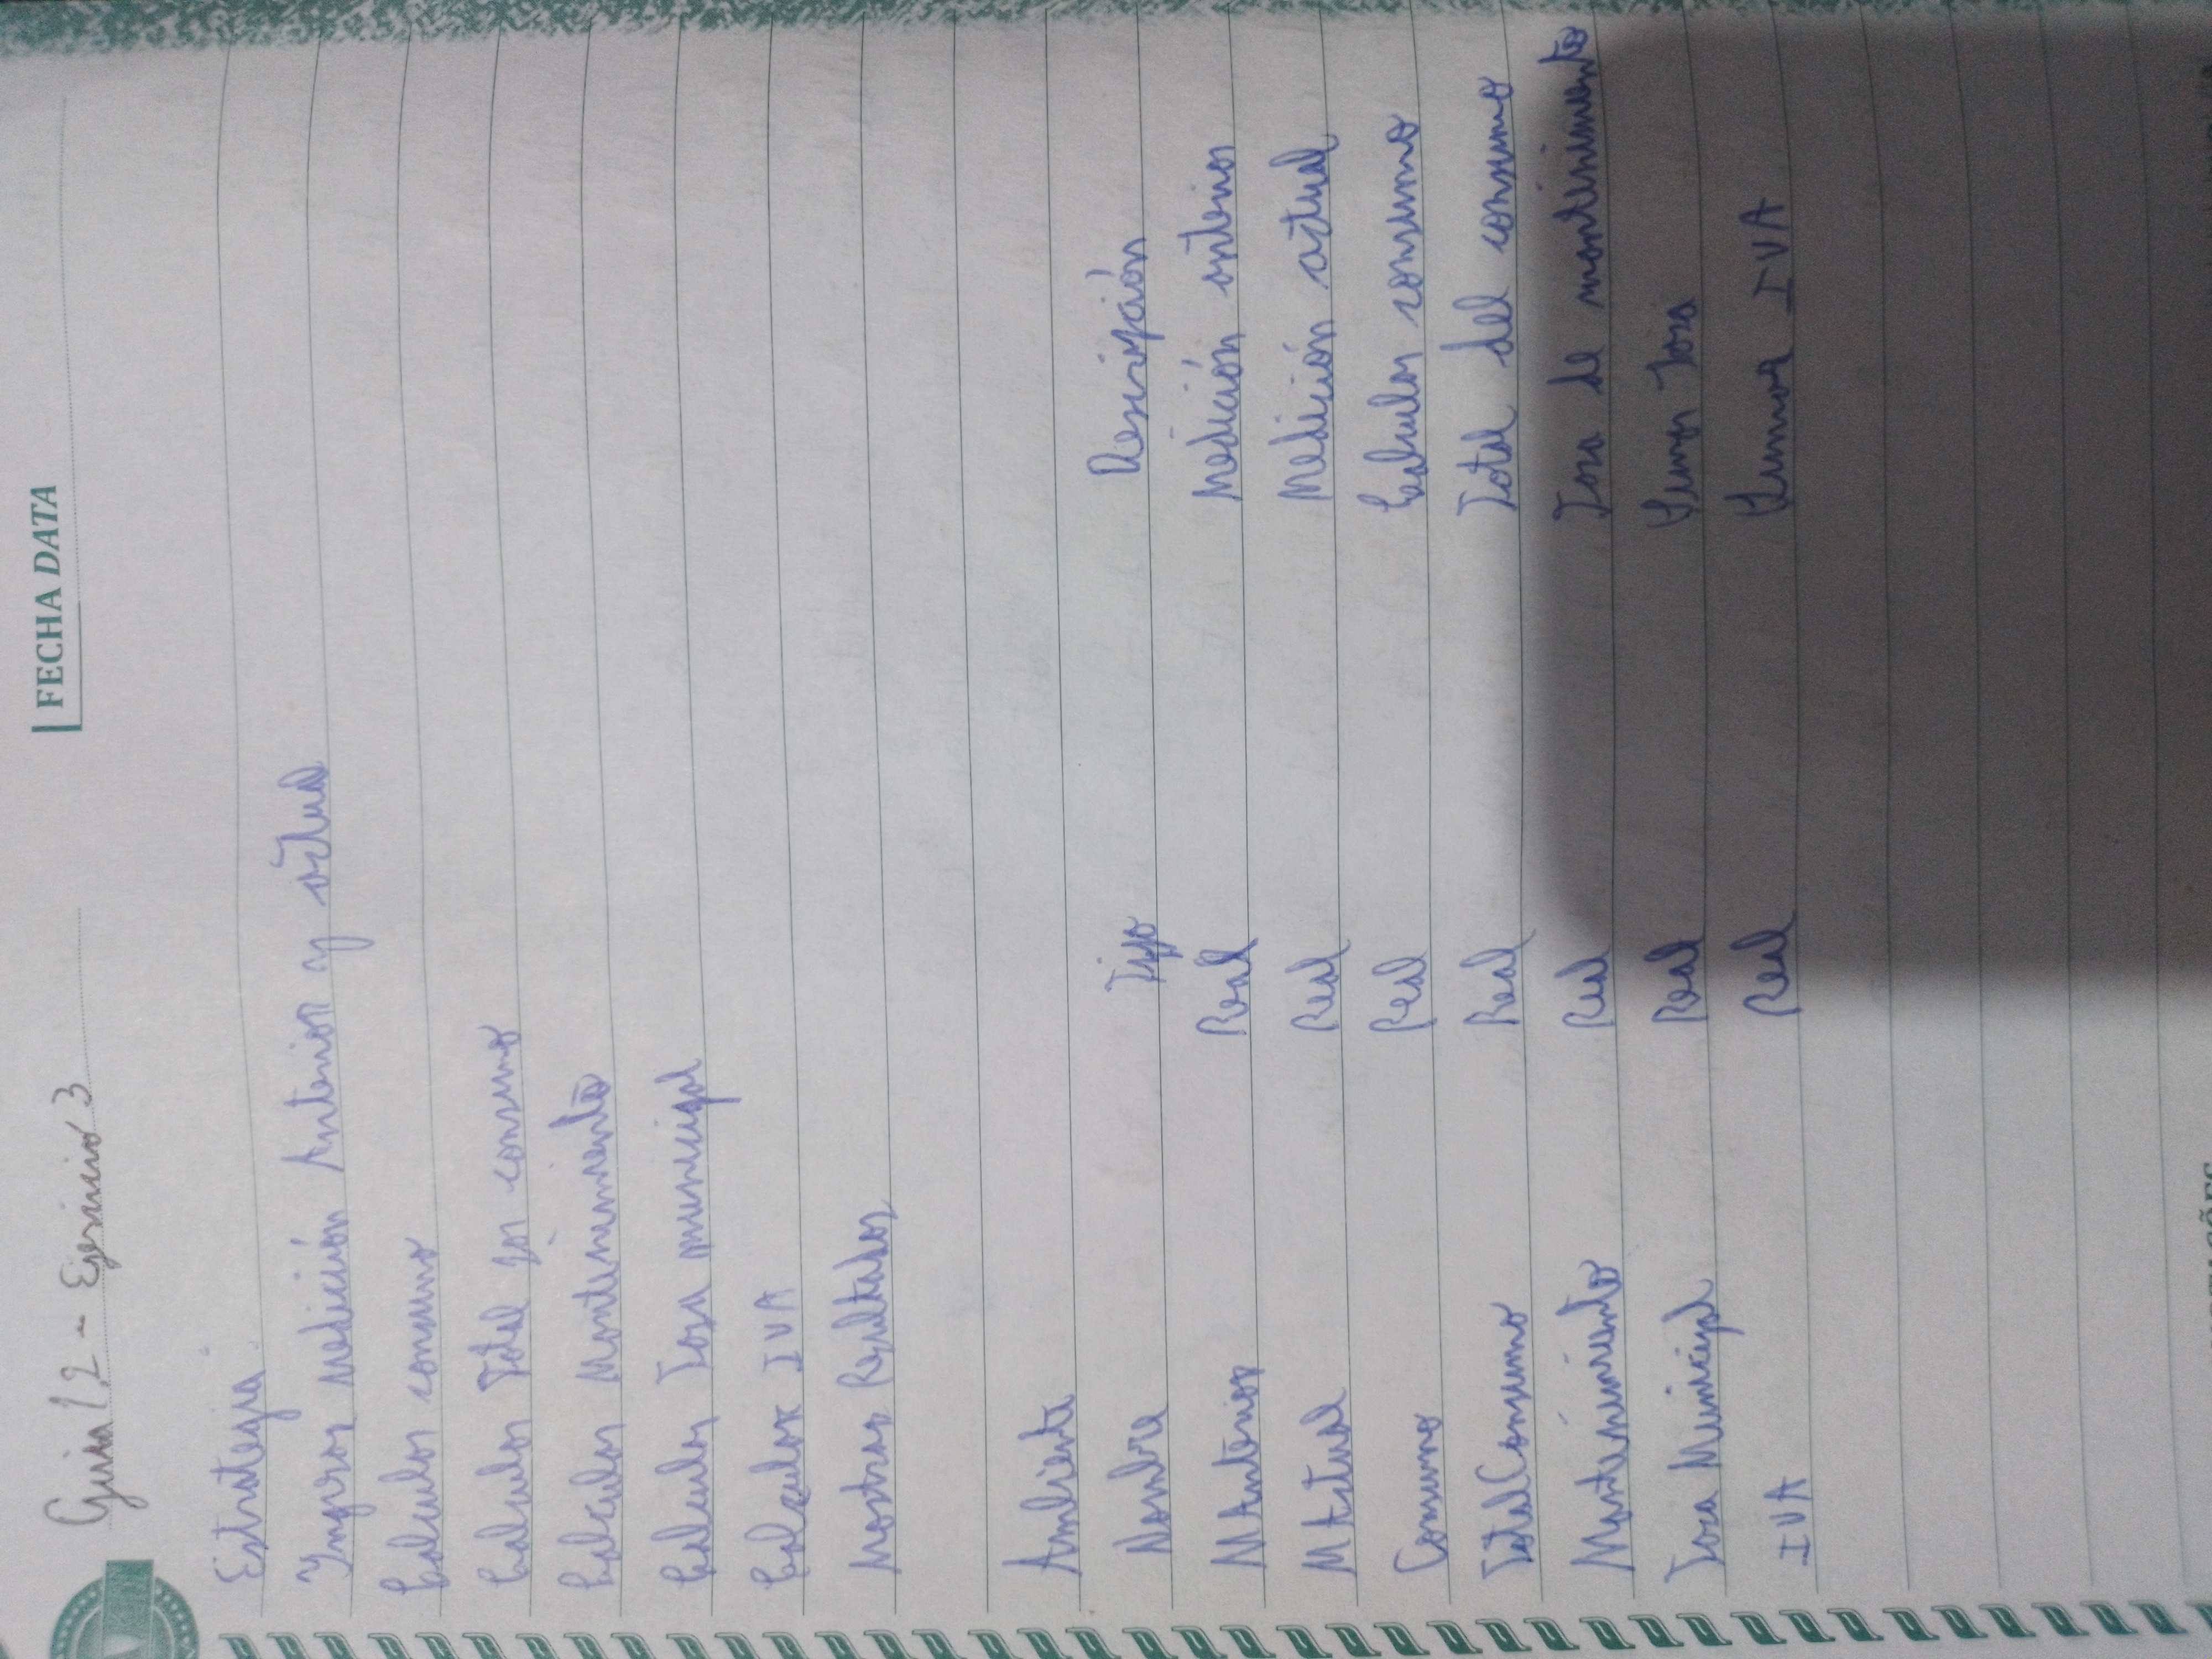 FECHA DATA
Guia 1.2 - Ejercicio 3
Estrategia:
Ingresar Medición Anterior y actual
Calcular consumo
Calcular Total por consumo
Calcular Mantenimiento
Calcular Tasa municipal
Calcular IVA
Mostrar Resultados
Ambiente
Nombre Tipo Descripción
MAnterior Real Medición anterior
MActual Real Medición actual
Consumo Real Calcular consumo
TotalConsumo Real Total del consumo
Mantenimiento Real Tasa de mantenimiento
Tasa Municipal Real Sumar Tasa
IVA Real Sumar IVA